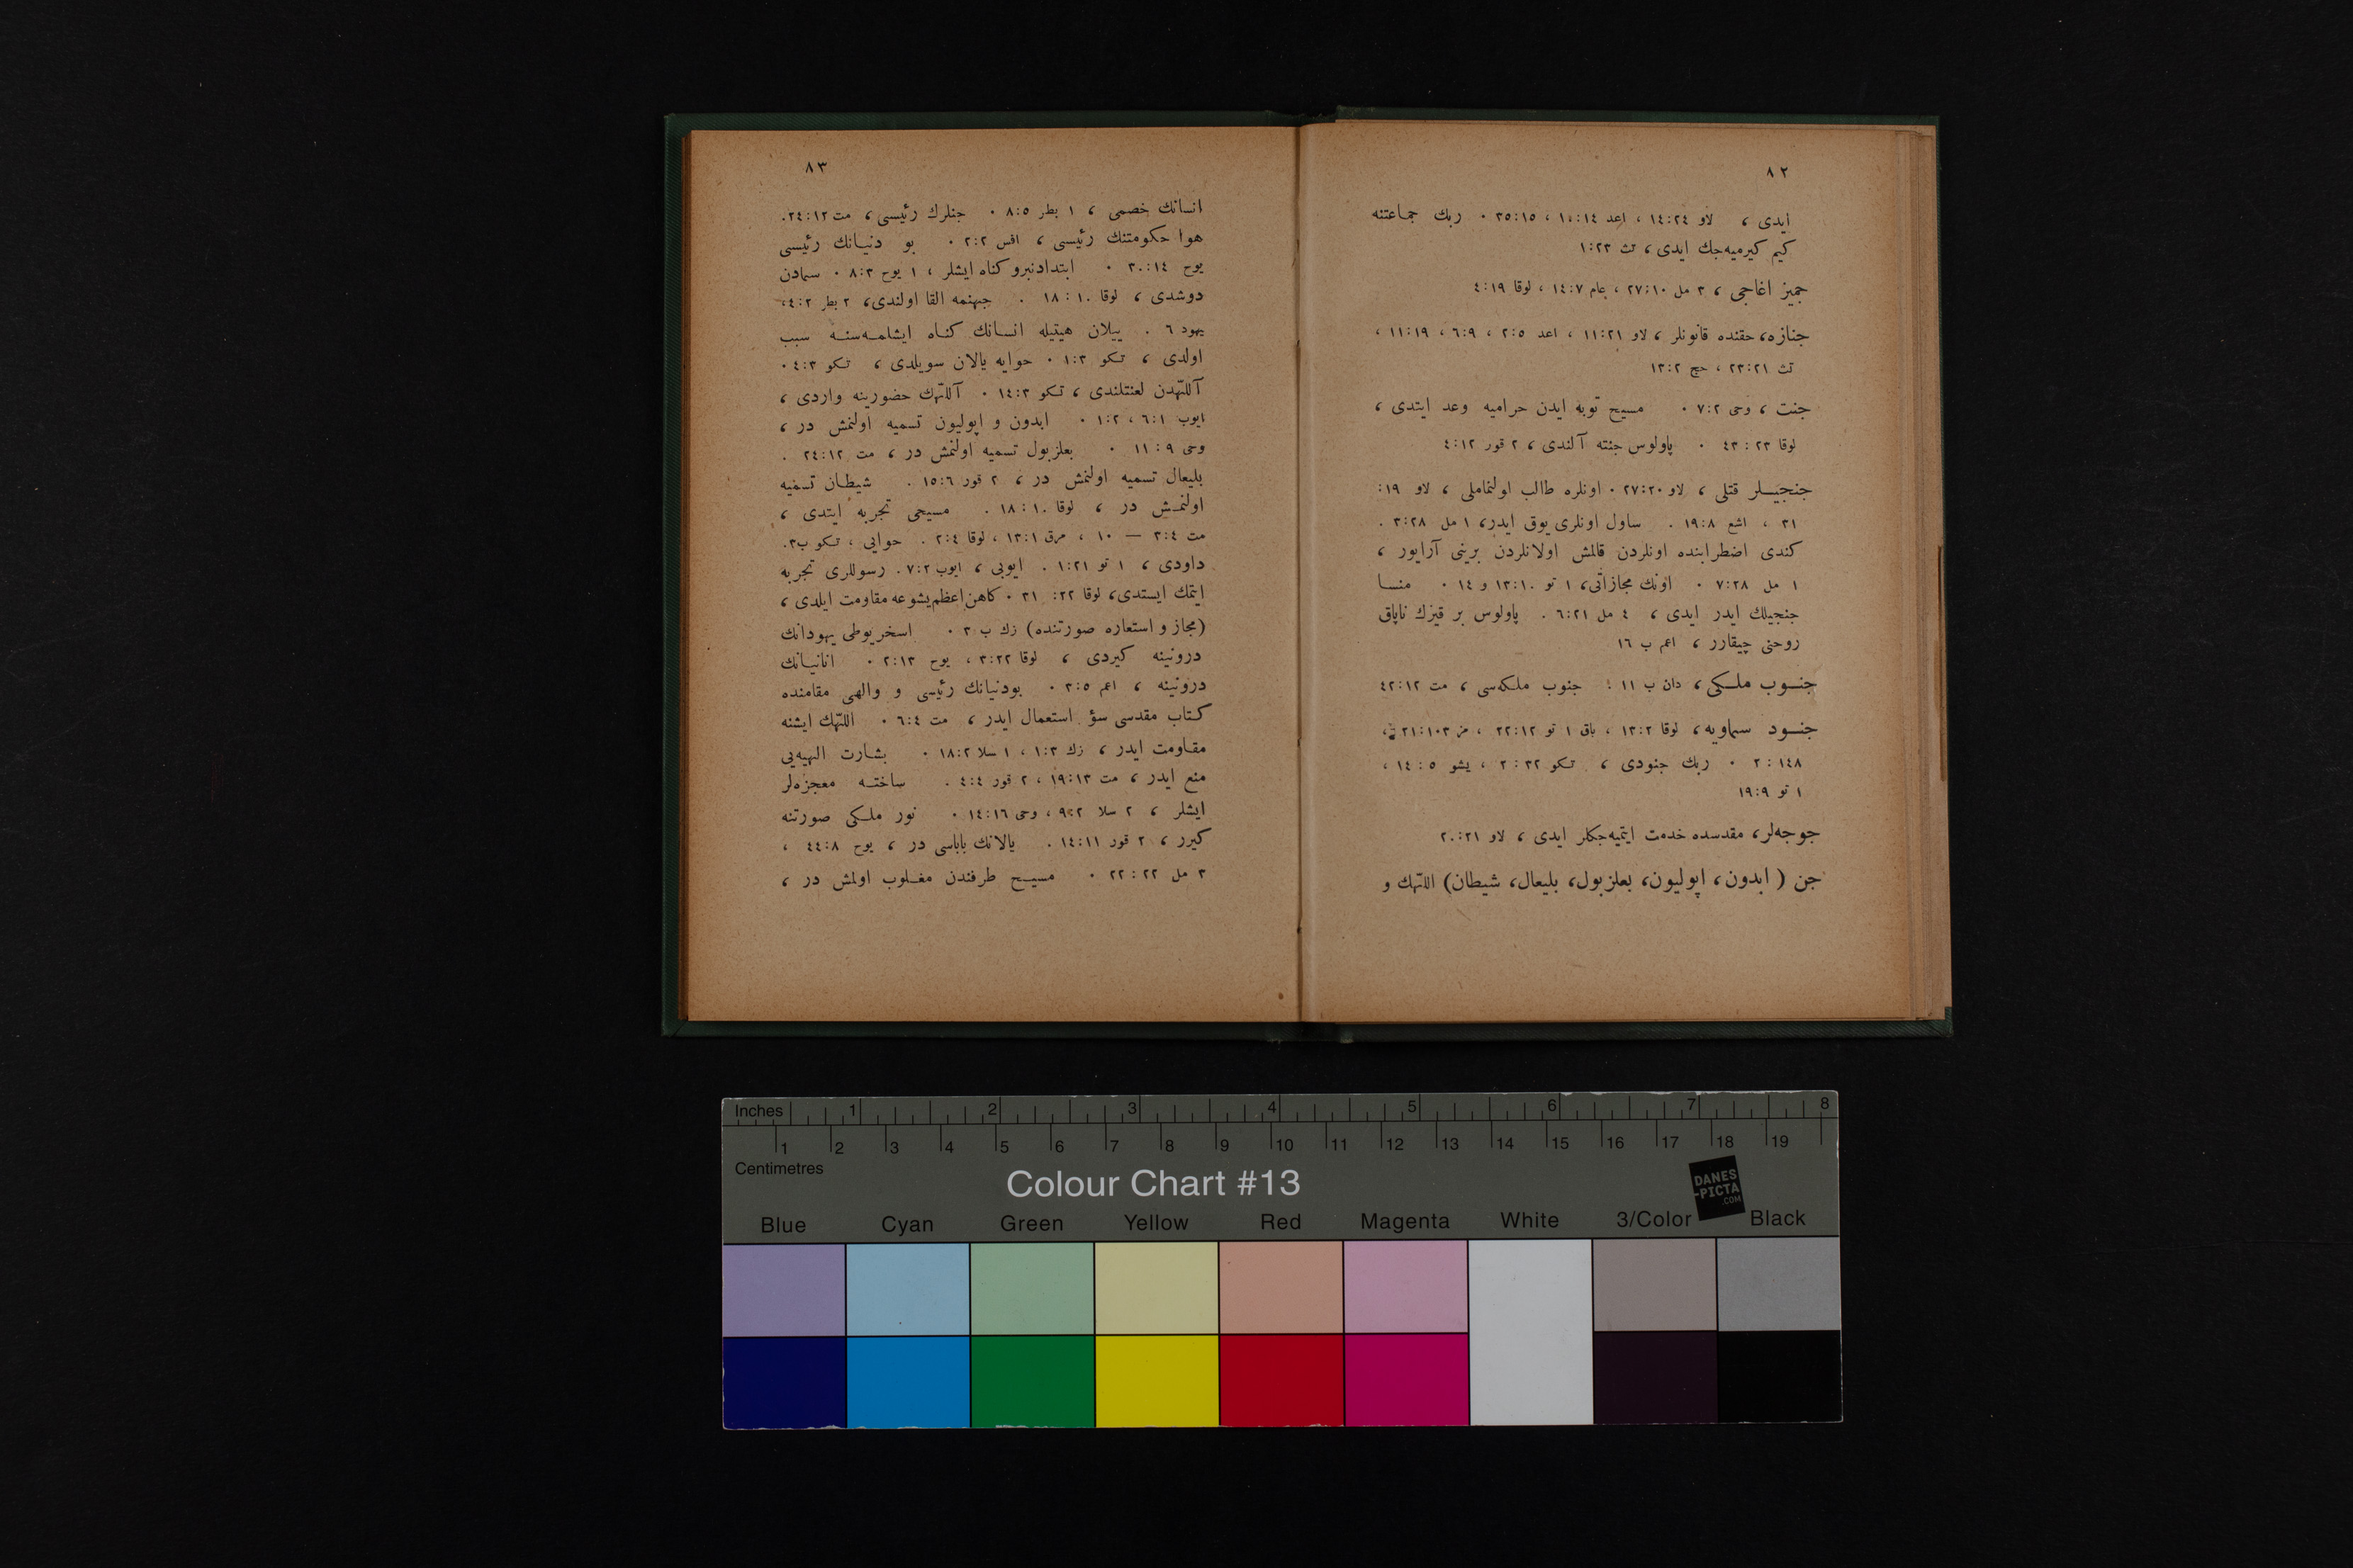 ٨٢
ایدی ، لاو ١٤:٢٤ ، اعد ١٠:١٤ ، ٣٥:١٥ ٠ ربك جماعتنه
كیم كیرمیه‌جك ایدی ، تث ١:٢٣
جمیز اغاجی ، ٣ مل ٢٧:١٠ ، عام ١٤:٧ ، لوقا ٤:١٩
جنازه، حقنده قانونلر ، لاو ١١:٢١ ، اعد ٢:٥ ، ٦:٩ ، ١١:١٩ ،
تث ٢٣:٢١ ، حج ١٣:٢
جنت ، وحی ٧:٢ ٠ مسیح توبه ایدن حرامیه وعد ایتدی ،
لوقا ٢٣ : ٤٣ ٠ پاولوس جنته آلندی ، ٢ قور ٤:١٢
جنجیـلر قتلی ، لاو ٢٧:٢٠ ٠ اونلره طالب اولنماملی ، لاو ١٩:
٣١ ، اشع ١٩:٨ . ساول اونلری یوق ایدر، ١ مل ٣:٢٨ .
كندی اضطرابنده اونلردن قالمش اولانلردن برینی آرایور ،
١ مل ٧:٢٨ ٠ اونك مجازاتی، ١ تو ١٣:١٠ و ١٤ ٠ منسا
جنجیلك ایدر ایدی ، ٤ مل ٦:٢١ . پاولوس بر قیزك ناپاق
روحنی چیقارر ، اعم ب ١٦
جنـوب ملـكی ، دان ب ١١ ؛ جنوب ملكه‌سی ، مت ٤٢:١٢
جنـود سماویه، لوقا ١٣:٢ ، باق ١ تو ٢٢:١٢ ، مز ٢١:١٠٣،
٢ : ١٤٨ ٠ ربك جنودی ، تكو ٣٢ : ٢ ، یشو ٥ : ١٤ ،
١ تو ١٩:٩
جوجه‌لر، مقدسده خدمت ایتمیه‌جكلر ایدی ، لاو ٢٠:٢١
جن ( ابدون، اپولیون، بعلزبول، بلیعال، شیطان) اللّهك و
٨٣
انسانك خصمی ، ١ بطر ٨:٥ ٠ جنلرك رئیسی ، مت ٢٤:١٢.
هوا حكومتنك رئیسی ، افس ٢:٢ ٠ بو دنیـانك رئیسی
یوح ٣٠:١٤ ٠ ابتدادنبرو كناه ایشلر ، ١ یوح ٨:٣ ٠ سمادن
دوشدی ، لوقا ١٠ : ١٨ . جهنمه القا اولندی، ٢ بطر ٤:٢،
یهود ٦ . ییلان هیتیله انسـانك كنـاه ایشلمـه‌سنـه سبب
اولدی ، تكو ١:٣ ٠ حوایه یالان سویلدی ، تكو ٤:٣ ٠
آللّهدن لعنتلندی ، تكو ١٤:٣ ٠ آللّهك حضورینه واردی ،
ایوب ٦:١ ، ١:٢ ٠ ابدون و اپولیون تسمیه اولنمش در ،
وحی ٩ : ١١ ٠ بعلزبول تسمیه اولنمش در ، مت ٢٤:١٢ .
بلیعال تسمیه اولنمش در ، ٢ قور ١٥:٦ . شیطـان تسمیه
اولنمـش در ، لوقا ١٠ : ١٨ . مسیحی تجربه ایتدی ،
مت ٣:٤ — ١٠ ، مرق ١٣:١ ، لوقا ٢:٤ . حوایی ، تكو ب٣.
داودی ، ١ تو ١:٢١ . ایوبی ، ایوب ٧:٢. رسوللری تجربه
ایتمك ایستدی، لوقا ٢٢: ٣١ ٠ كاهن اعظم یشوعه مقاومت ایلدی ،
(مجاز و استعاره صورتنده) زك ب ٣ ٠ اسخریوطی یهودانك
درونینه كیردی ، لوقا ٣:٢٢ ، یوح ٢:١٣ ٠ انانیـانك
درونینه ، اعم ٣:٥ ٠ بودنیانك رئیسی و والهی مقامنده
كـتاب مقدسی سؤ استعمال ایدر ، مت ٦:٤ ٠ اللّهك ایشنه
مقـاومت ایدر ، زك ١:٣ ، ١ سلا ١٨:٢ ٠ بشـارت الهیه‌یی
منع ایدر ، مت ١٩:١٣ ، ٢ قور ٤:٤ . ساختـه معجزه‌لر
ایشلر ، ٢ سلا ٩:٢ ، وحی ١٤:١٦ ٠ نور ملـكی صورتنه
كیرر ، ٢ قور ١٤:١١ . یالانك باباسی در ، یوح ٤٤:٨ ،
٣ مل ٢٢ : ٢٢ ٠ مسیـح طرفندن مغـلوب اولمش در ،
Inches 1 2 3 4 5 6 7 8
1 2 3 4 5 6 7 8 9 10 11 12 13 14 15 16 17 18 19
Centimetres
Colour Chart #13
DANES
-PICTA
.COM
Blue Cyan Green Yellow Red Magenta White 3/Color Black